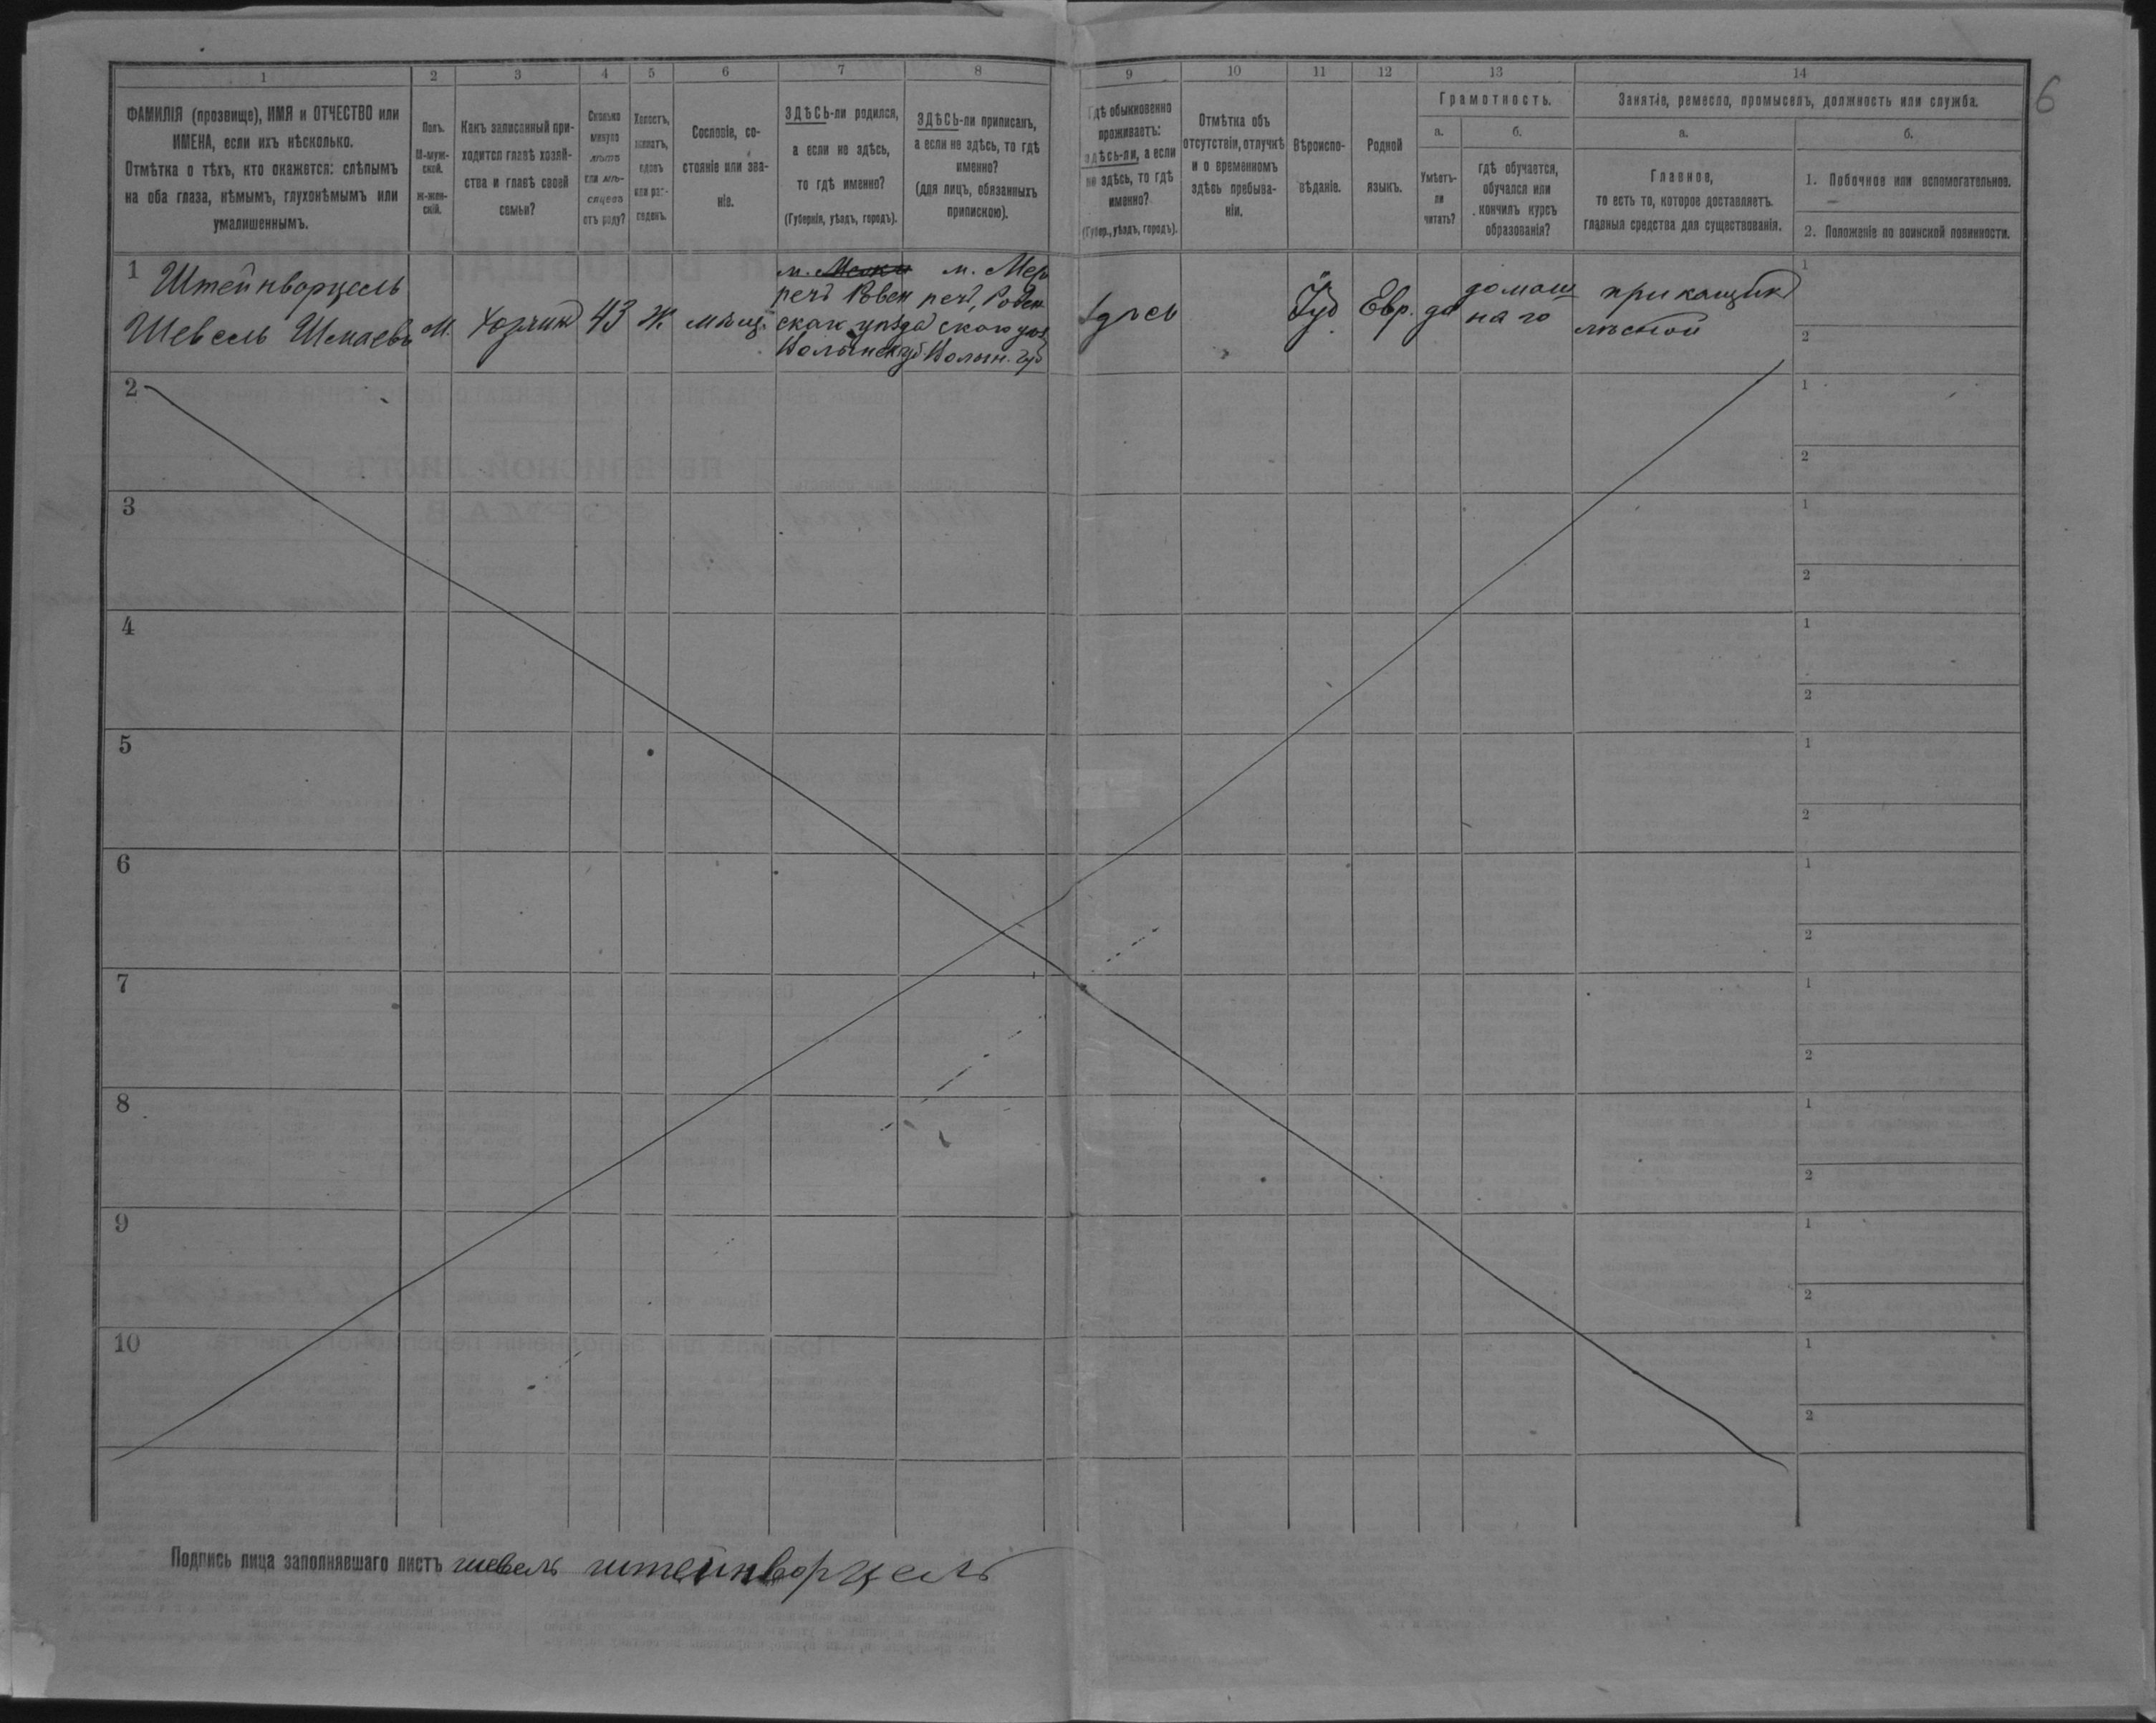 6
1 2 3 4 5 6 7 8 9 10 11 12 13 14
ФАМИЛІЯ (прозвище), ИМЯ и ОТЧЕСТВО или
ИМЕНА, если ихъ нѣсколько.
Отмѣтка о тѣхъ, кто окажется: слѣпымъ
на оба глаза, нѣмымъ, глухонѣмымъ или
умалишеннымъ.
Полъ.
М-муж-
ской.
Ж-жен-
скій.
Какъ записанный при-
ходится главѣ хозяй-
ства и главѣ своей
семьи?
Сколько
минуло
лѣтъ
или мѣ-
сяцевъ
отъ роду?
Холостъ,
женатъ,
вдовъ
или раз-
веденъ.
Сословіе, со-
стояніе или зва-
ніе.
ЗДѢСЬ-ли родился,
а если не здѣсь,
то гдѣ именно?
(Губернія, уѣздъ, городъ).
ЗДѢСЬ-ли приписанъ,
а если не здѣсь, то гдѣ
именно?
(для лицъ, обязанныхъ
припискою).
Гдѣ обыкновенно
проживаетъ:
здѣсь-ли, а если
не здѣсь, то гдѣ
именно?
(Губер., уѣздъ, городъ).
Отмѣтка объ
отсутствіи, отлучкѣ
и о временномъ
здѣсь пребыва-
ніи.
Вѣроиспо-
вѣданіе.
Родной
языкъ.
Грамотность.
а.
Умѣетъ-
ли
читать?
б.
гдѣ обучается,
обучался или
кончилъ курсъ
образованія?
Занятіе, ремесло, промыселъ, должность или служба.
а.
Главное,
то есть то, которое доставляетъ
главныя средства для существованія.
б.
1. Побочное или вспомогательное.
2. Положеніе по воинской повинности.
1
Штейнворцель
Шевель Шмаевъ
М.
43
Ж.
мѣщ.
м.
речъ Ровен
скаго уѣзда
Волынск губ
м. Меж
речъ, Ровен
скаго уѣз
Волын. губ
здѣсь
Іуд
Евр.
да
домаш
наго
прикащикъ
лѣсной
1
2
2
1
2
3
1
2
4
1
2
5
1
2
6
1
2
7
1
2
8
1
2
9
1
2
10
1
2
Подпись лица заполнявшаго листъ шевель штейнворцель